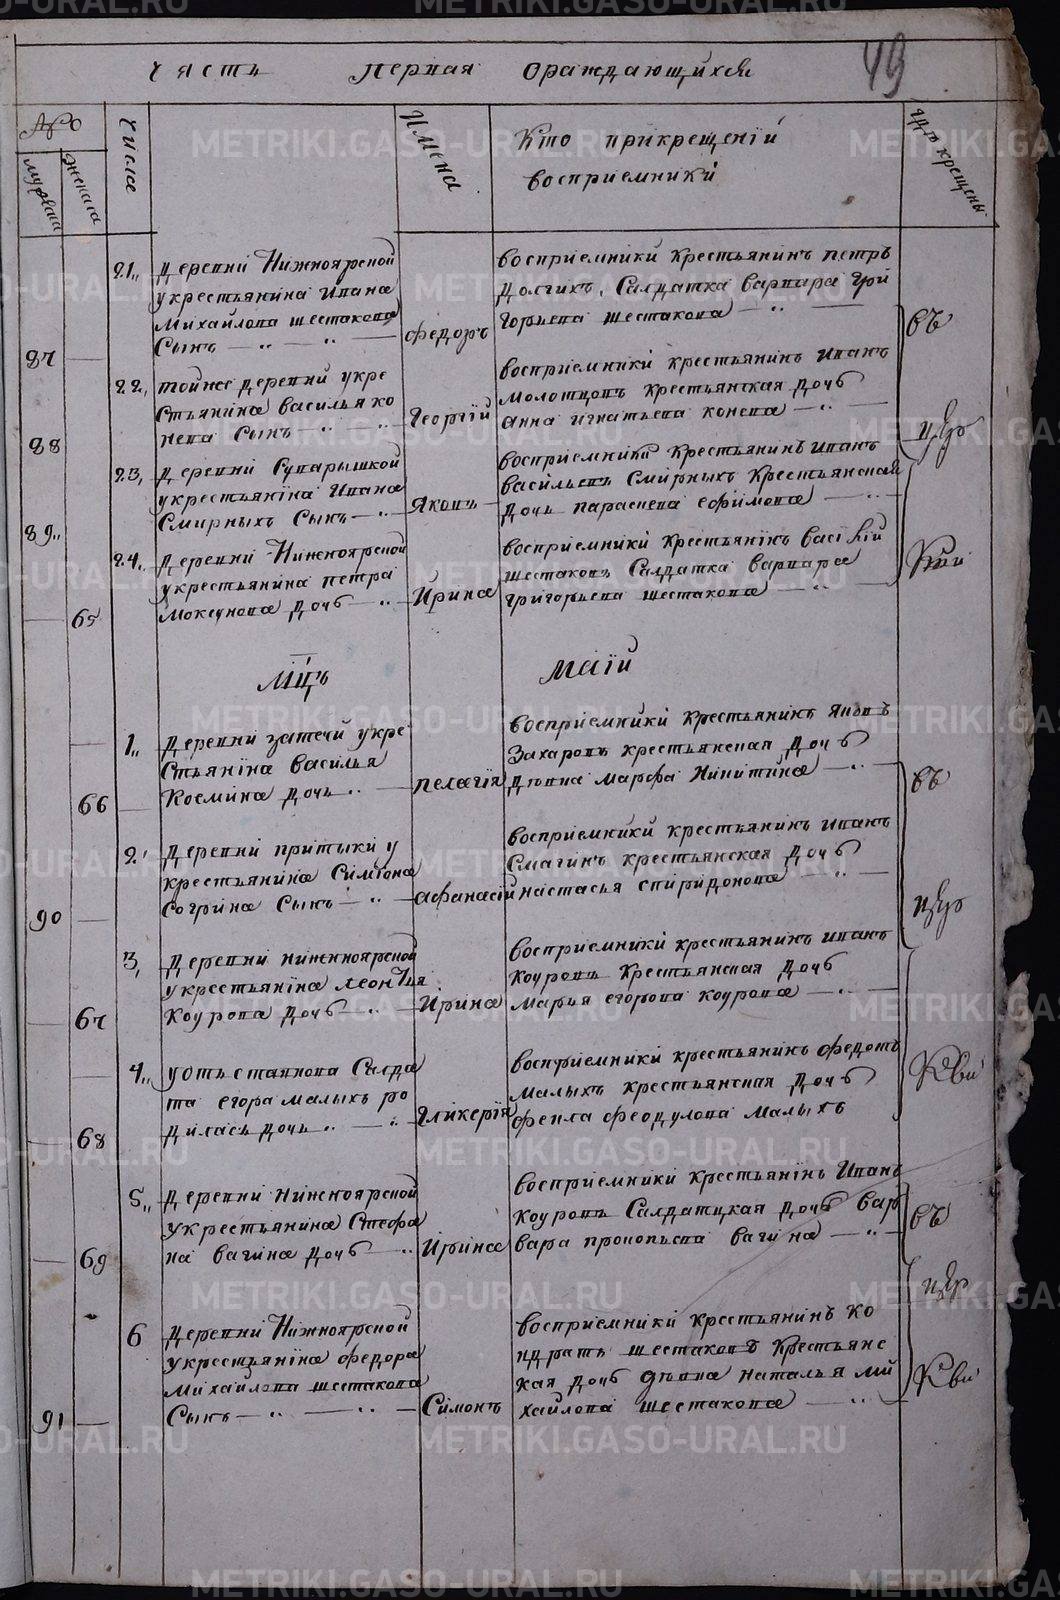 49
Часть первая ораждающихся
№
мужеска
женска
числа
имена
Кто прикрещении
восприемники
где крещены
87
21,, Деревни Нижноярской
укрестьянина Ивана
Михайлова шестакова
Сынъ
Федоръ
восприемники крестьянинъ петръ
Долгихъ, Салдатка варвара гри
горьева шестакова
88
22, тойже деревни укре
стьянина василья ко
нева Сынъ
Георгий
восприемники крестьянинъ иванъ
Молотцовъ крестьянская дочь
анна игнатьева конева
89,,
23, Деревни Супарышкой
укрестьянина Ивана
Смирныхъ Сынъ
Яковъ
восприемники крестьянинъ иванъ
васильевъ Смирныхъ крестьянская
дочь параскева ефимова
65
24,, Деревни Нижноярской
укрестьянина петра
Моксунова Дочь
Ирина
восприемники крестьянинъ василий
шестаковъ Салдатка варвара
григорьева шестакова
въ
церъ
Мцъ Маий
66
1,, Деревни затечи укре
стьянина василья
Космина дочь
пелагия
восприемники крестьянинъ яковъ
Захаровъ крестьянская дочь
девка марфа Никитина
въ
90
2, Деревни притыки у
крестьянина Симеона
Согрина Сынъ
афанасий
восприемники крестьянинъ иванъ
Смагинъ крестьянская дочь
настасья спиридонова
церъ
67
3, Деревни нижноярской
укрестьянина леонтья
Коурова Дочь
Ирина
восприемники крестьянинъ иванъ
Коуровъ Крестьянская дочь
марья егорова коурова
68
4,, уотьставнова Салда
та егора малыхъ ро
дилась дочь
гликерия
восприемники крестьянинъ федотъ
малыхъ крестьянская дочь
фекла феодулова малыхъ
69
5,, Деревни нижноярской
укрестьянина Стефа
на вагина дочь
Ирина
восприемники крестьянинъ Иванъ
Коуровъ Салдатцкая дочь вар
вара прокопьева вагина
въ
церъ
91
6 Деревни Нижноярской
укрестьянина федора
михайлова шестакова
Сынъ
Симонъ
восприемники крестьянинъ ко
ндрать шестаковъ Крестьянс
кая дочь девка наталья ми
хайлова шестакова
METRIKI.GASO-URAL.RU